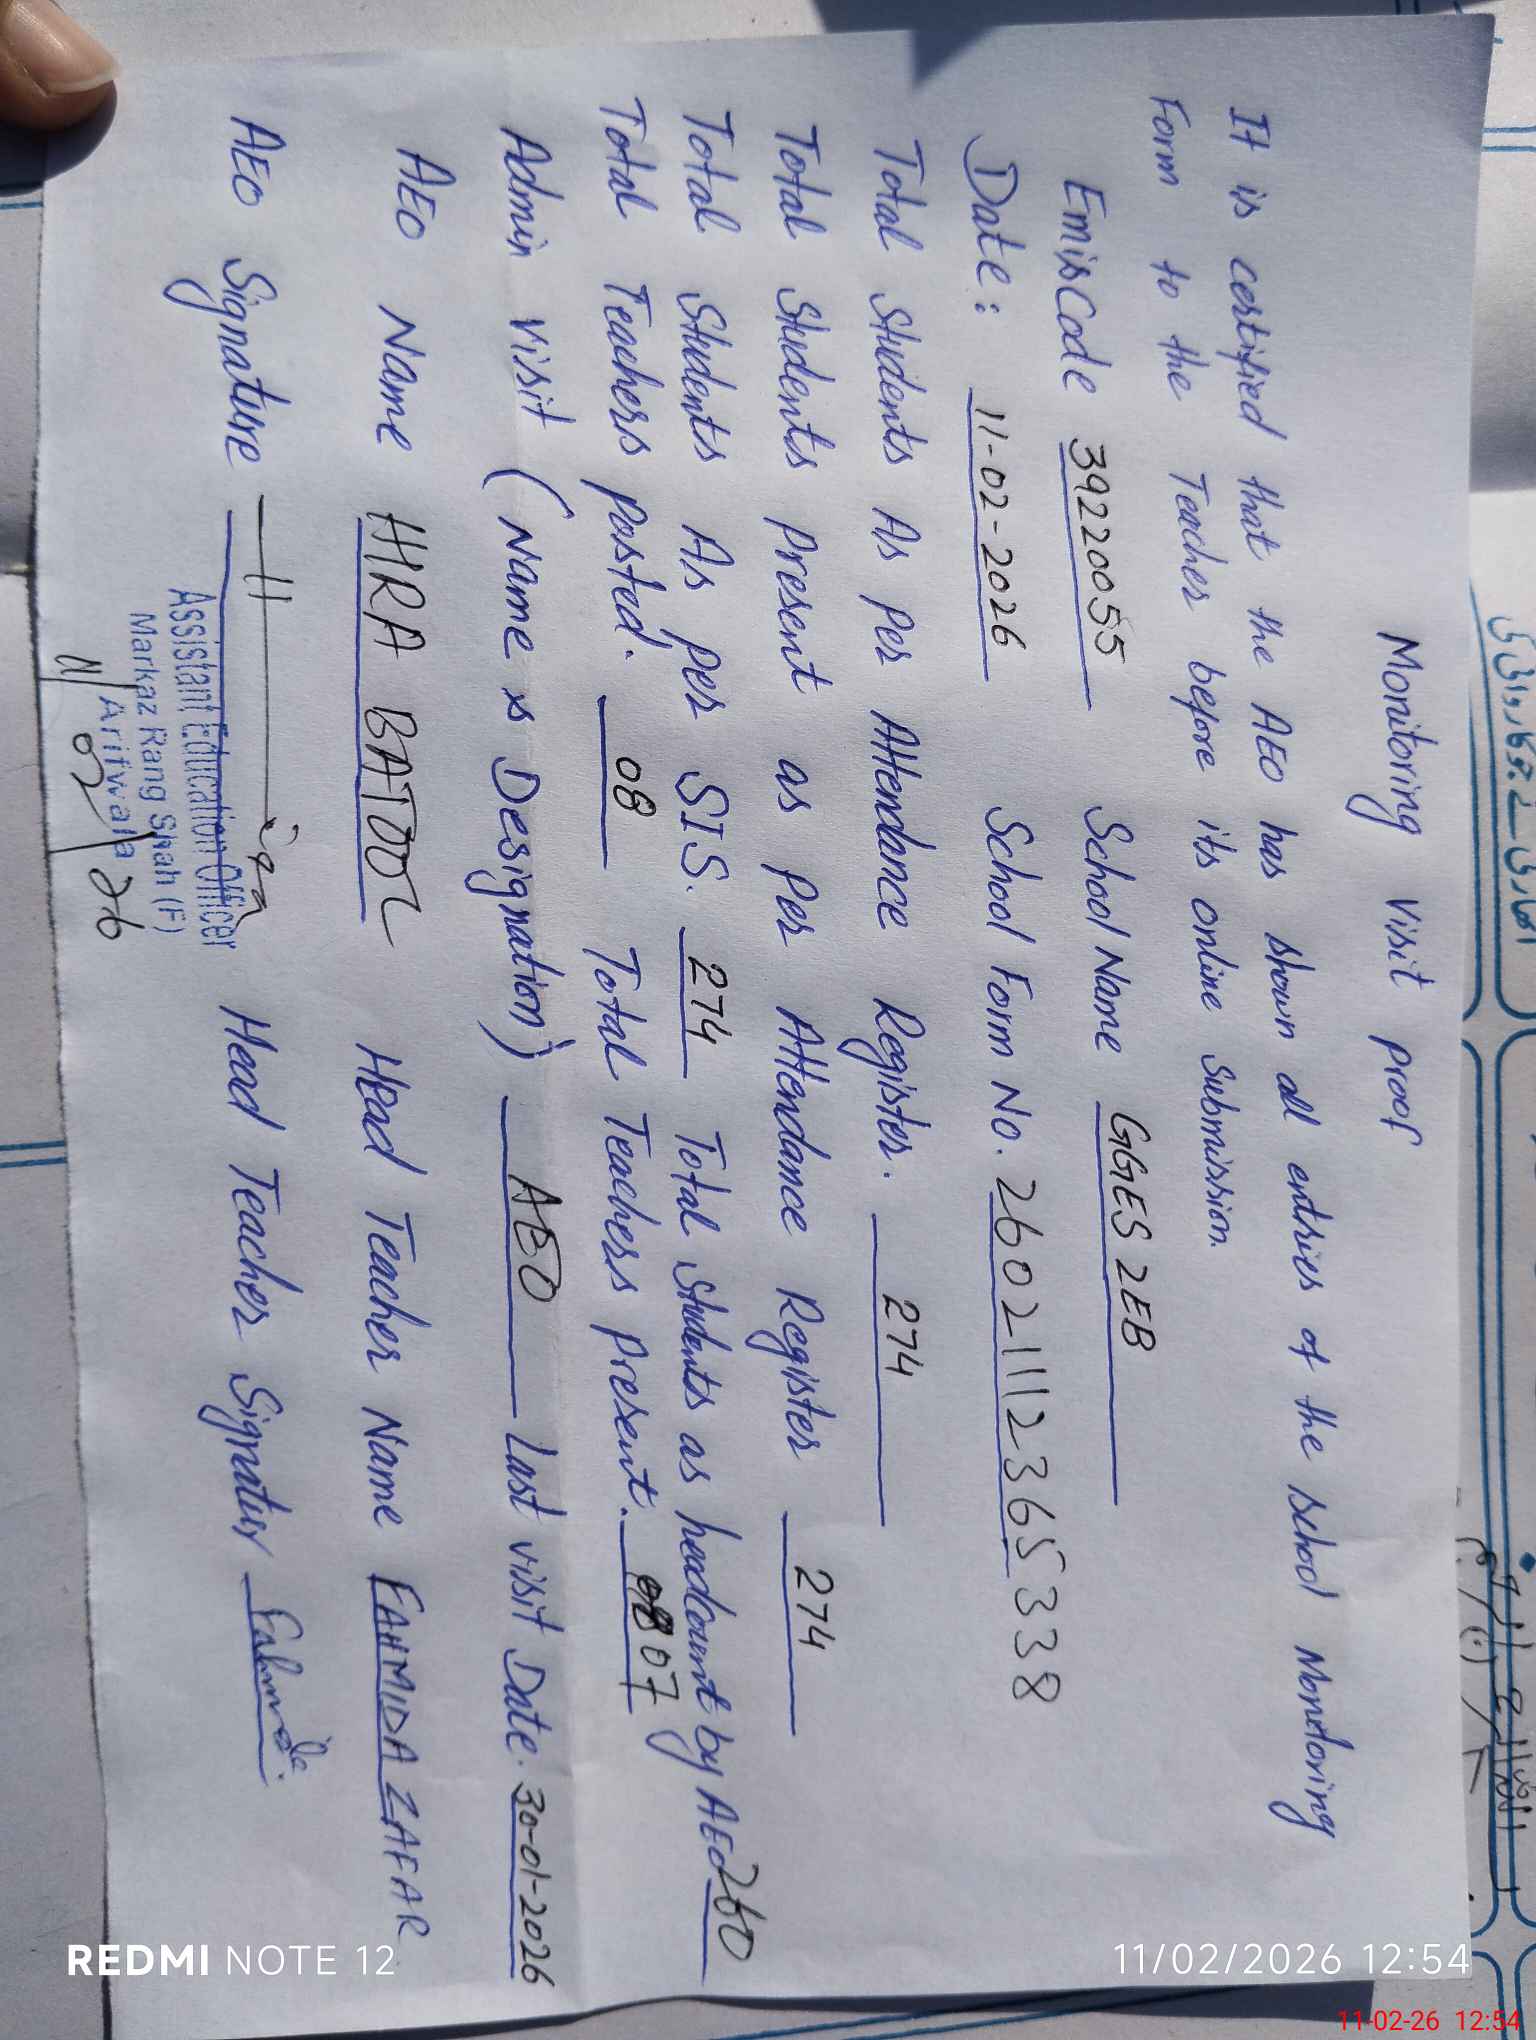 Monitoring Visit proof
It is certified that the AEO has shown all entries of the School Monitoring
Form to the Teacher before its online Submission.
Emis Code 39220055 School Name GGES 2EB
Date: 11-02-2026 School Form No. 26021112365338
Total Students As Per Attendance Register. 274
Total Students Present as Per Attendance Register 274
Total Students As per SIS. 274 Total Students as headcount by AEO 260
Total Teachers posted. 08 Total Teachers present. 07
Admin Visit (Name & Designation) AEO Last visit Date. 30-01-2026
AEO Name HIRA BATOOL Head Teacher Name FAHMIDA ZAFAR
AEO Signature Head Teacher Signatur Fahmida
Assistant Education Officer
Markaz Rang Shah (F)
Arifwala
11/02/26
REDMI NOTE 12
11/02/2026 12:54
11-02-26 12:54